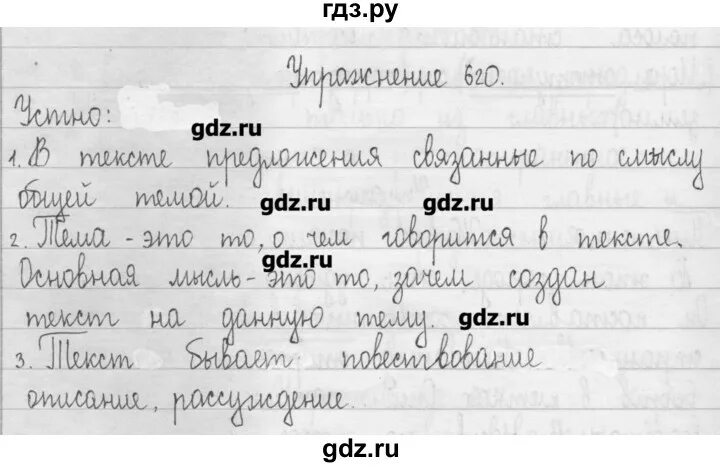 гдз.ру
Упражнение 620.
Устно:
gdz.ru
1. В тексте предложения связанные по смыслу
общей темой. gdz.ru gdz.ru
2. Тема - это то, о чем говорится в тексте.
gdz.ru
Основная мысль - это то, зачем создан
текст на данную тему. gdz.ru
gdz.ru
3. Текст бывает повествование
описание, рассуждение.
gdz.ru